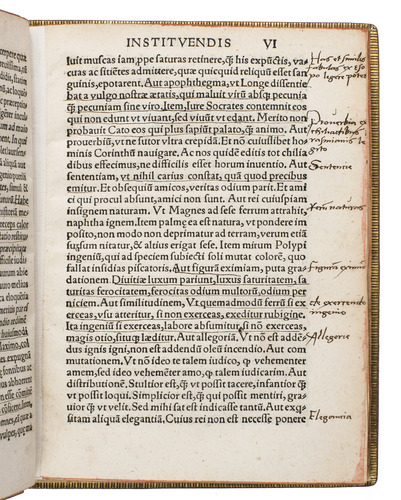 INSTITVENDIS VI
luit muscas iam, ppe saturas retinere, q̃ his expũctis, va-
cuas ac sitiẽtes admittere, quæ quicquid reliquũ esset san
guinis, epotarent. Aut apophthegma, vt Longe dissentie
bat a vulgo nostræ ætatis, qui maluit virũ absq̃ pecunia
q̃ pecuniam sine viro. Item, Iure Socrates contemnit eos
qui non edunt vt viuant, sed viuũt vt edant. Merito non
probauit Cato eos qui plus sapiũt palato, q̃ animo. Aut
prouerbiũ, vt ne sutor vltra crepidã. Et nõ cuiuslibet ho-
minis Corinthũ nauigare. Ac nos quidẽ editis tot chilia
dibus effecimus, ne difficilis esset horum inuentio. Aut
sententiam, vt nihil carius constat, quã quod precibus
emitur. Et obsequiũ amicos, veritas odium parit. Et ami
ci qui procul absunt, amici non sunt. Aut rei cuiuspiam
insignem naturam. Vt Magnes ad sese ferrum attrahit,
naphtha ignem. Item palmę ea est natura, vt pondere im
posito, non modo non deprimatur ad terram, verum etiã
sursum nitatur, & altius erigat sese. Item mirum Polypi
ingeniũ, qui ad speciem subiecti soli mutat colorẽ, quo
fallat insidias piscatoris. Aut figurã eximiam, puta gra-
dationem Diuitiæ luxum pariunt, luxus saturitatem, sa
turitas ferocitatem, ferocitas odium multorũ, odium per
niciem. Aut similitudinem, Vt quemadmodũ ferrũ si ex
erceas, vsu atteritur, si non exerceas, exeditur rubigine.
Ita ingeniũ si exerceas, labore absumitur, si nõ exerceas,
magis otio, situq̃ læditur. Aut allegoriã. Vt nõ est adden-
dus ignis igni, non est addendũ oleũ incendio. Aut com
mutationem. Vt nõ ideo te talem iudico, q̃ vehementer
amem, sed ideo vehemẽter amo, q̃ talem iudicarim. Aut
distributionẽ. Stultior est, q̃ vt possit tacere, infantior q̃
vt possit loqui. Simplicior est, q̃ qui possit mentiri, gra-
uior q̃ vt velit. Sed mihi fat est indicasse tantũ. Aut exq̃-
sitam aliquã elegantiã, Cuius rei non est necesse ponere
Has et similes
fabulas ex
Sententie
Rerũ naturas
Allegorie
Elegancia